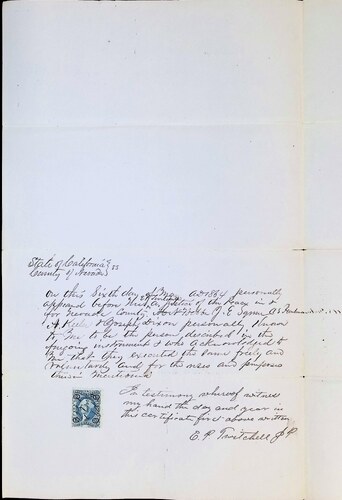 State of California } ss
County of Nevada
On this Sixth day of May AD 1864 personally
appeared before me a Justice of the Peace in &
for Nevada County
personally known
to me to be the person described in the
foregoing instrument & who acknowledged to
me that they executed the same freely and
voluntarily and for the uses and purposes
therein mentioned
In testimony whereof witness
my hand the day and year in
this certificate first above written
E. P. Twitchell J P